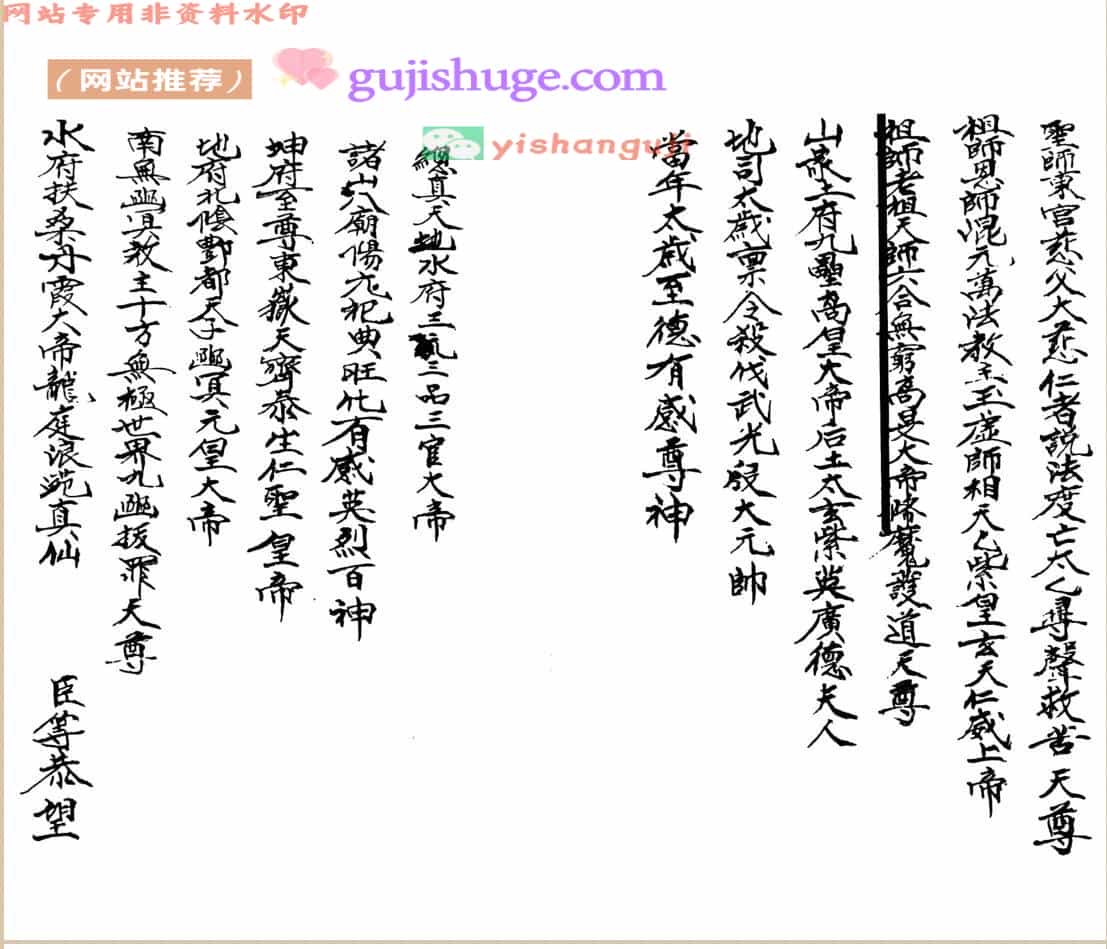 网站专用非资料水印
（网站推荐）
gujishuge.com
yishanguji
聖師東宮慈父大慈仁者説法度亡太乙尋聲救苦天尊
祖師恩師混元萬法教主玉虚師相天乙紫皇玄天仁威上帝
祖師老祖天師六合無窮高旻大帝降魔護道天尊
山家土府九壘高皇大帝后土太玄紫英廣德夫人
地司太歲禀令殺伐武光殷大元帥
當年太歲至德有感尊神
總真天地水府三元三品三官大帝
諸山八廟陽元祀典旺化有感英烈百神
坤府至尊東嶽天齊泰生仁聖皇帝
地府北陰酆都天子幽冥元皇大帝
南無幽冥教主十方無極世界九幽拔罪天尊
水府扶桑丹霞大帝龍庭浪苑真仙
臣等恭望